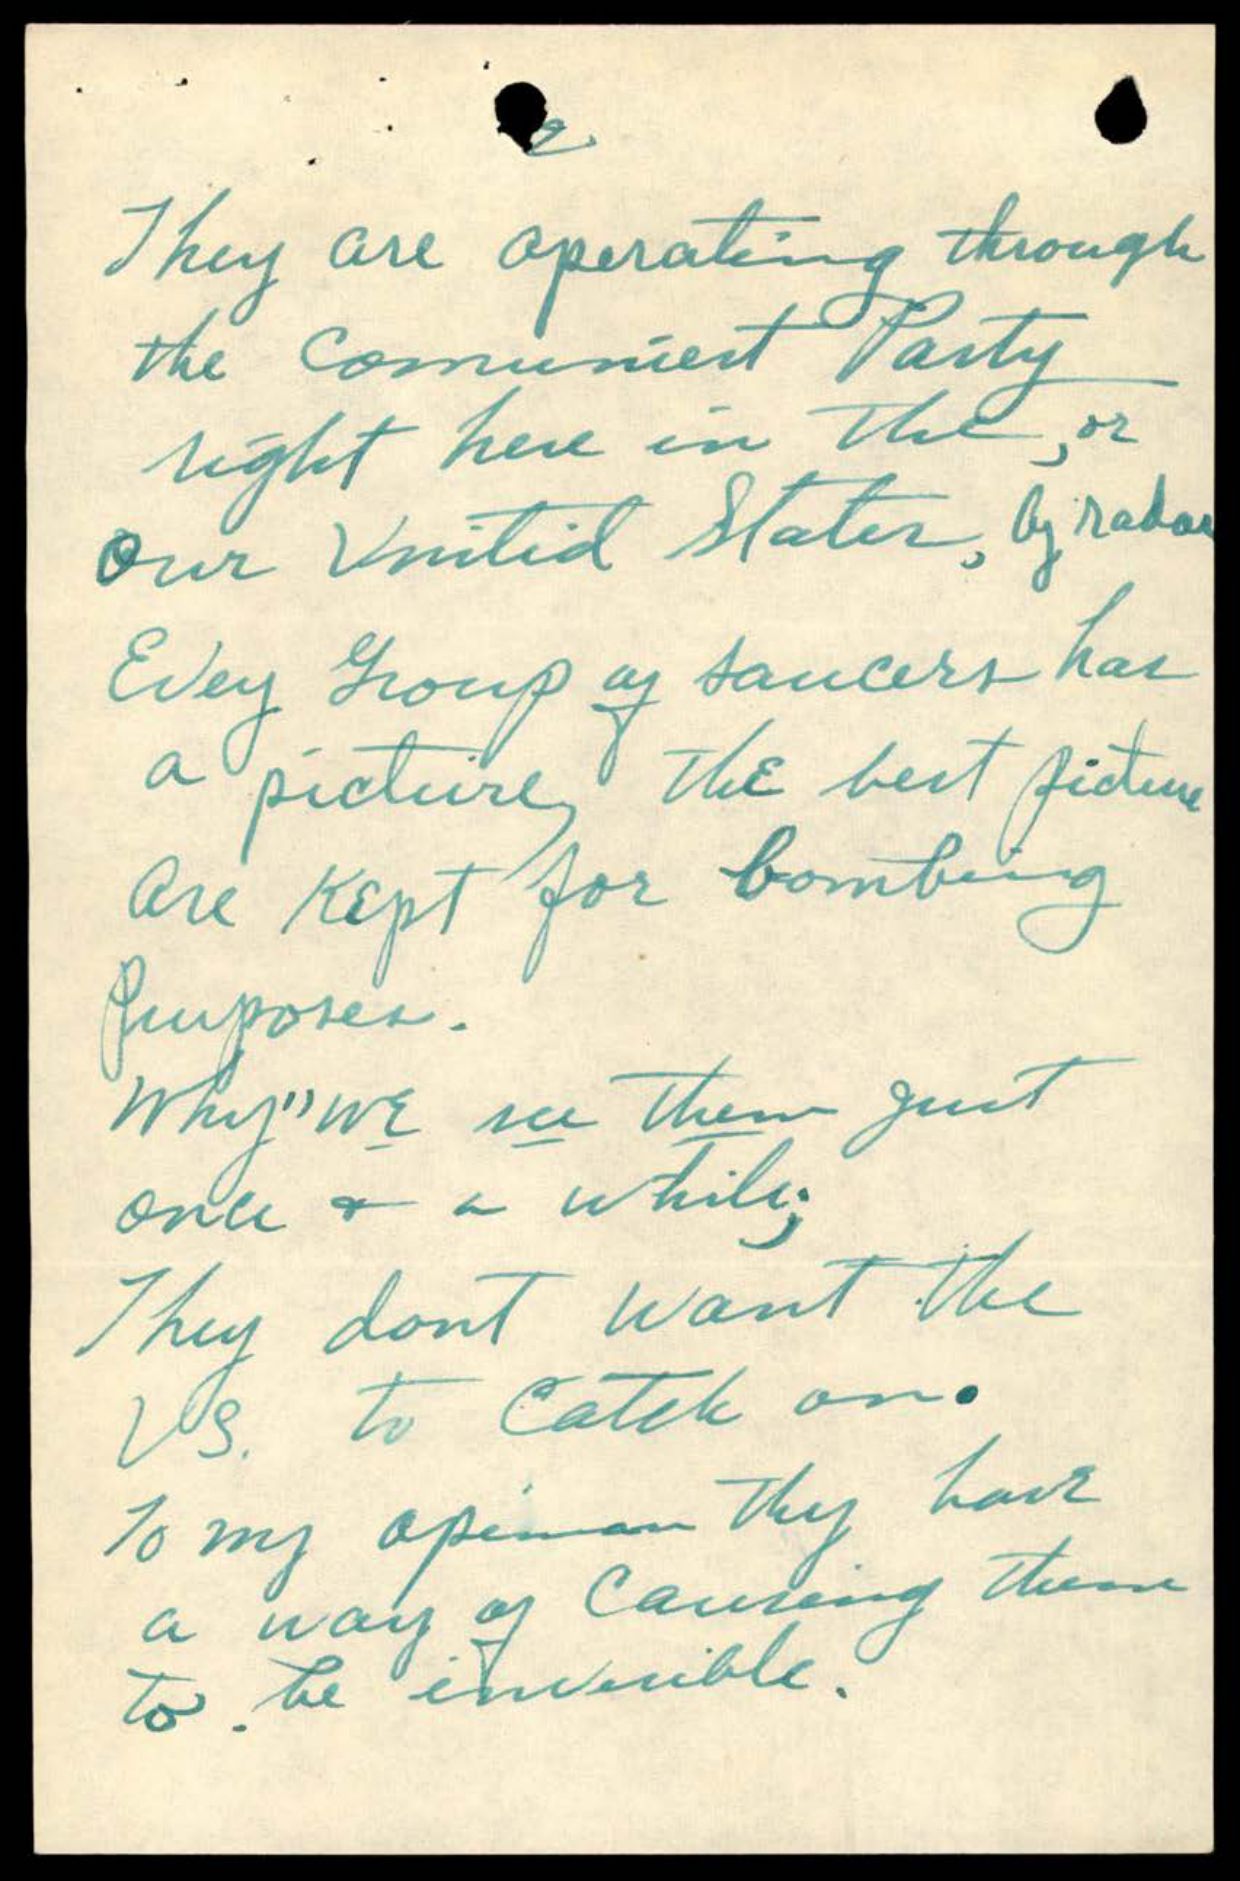 2.
They are operating through
the Comunist Party
right here in the, or
our United States, by radar
Evey Group of saucers has
a picture, the best picture
are kept for bombing
purposes.
Why" we see them just
once + a while;
They dont want the
US. to Catch on.
To my opinion they have
a way of Causing them
to be invisible.